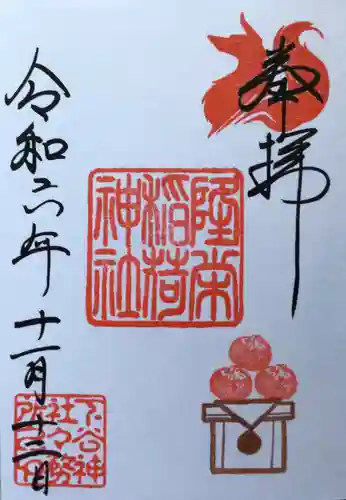 奉拝
隆栄
稲荷
神社
令和六年十一月十三日
下谷神
社々務
所之印